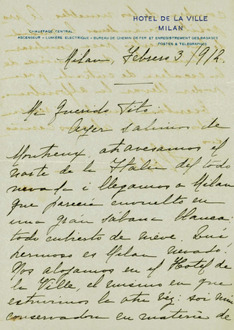 HOTEL DE LA VILLE
MILAN
CHAUFFAGE CENTRAL
ASCENSEUR - LUMIÈRE ELECTRIQUE - BUREAU DE CHEMIN DE FER ET ENREGISTREMENT DES BAGAGES
POSTES & TELEGRAPHES
Milan, Febrero 3/912.
Mi Querido Tito:
Ayer salimos de
Montreux atravesamos el
norte de la Italia del todo
nevada i llegamos a Milan
que parecia envuelta en
una gran sábana blanca
todo cubierto de nieve. Qué
hermoso es Milan nevado!
Nos alojamos en el Hotel de
la Ville, el mismo en que
estuvimos la otra vez: soi mui
conservadora en materia de